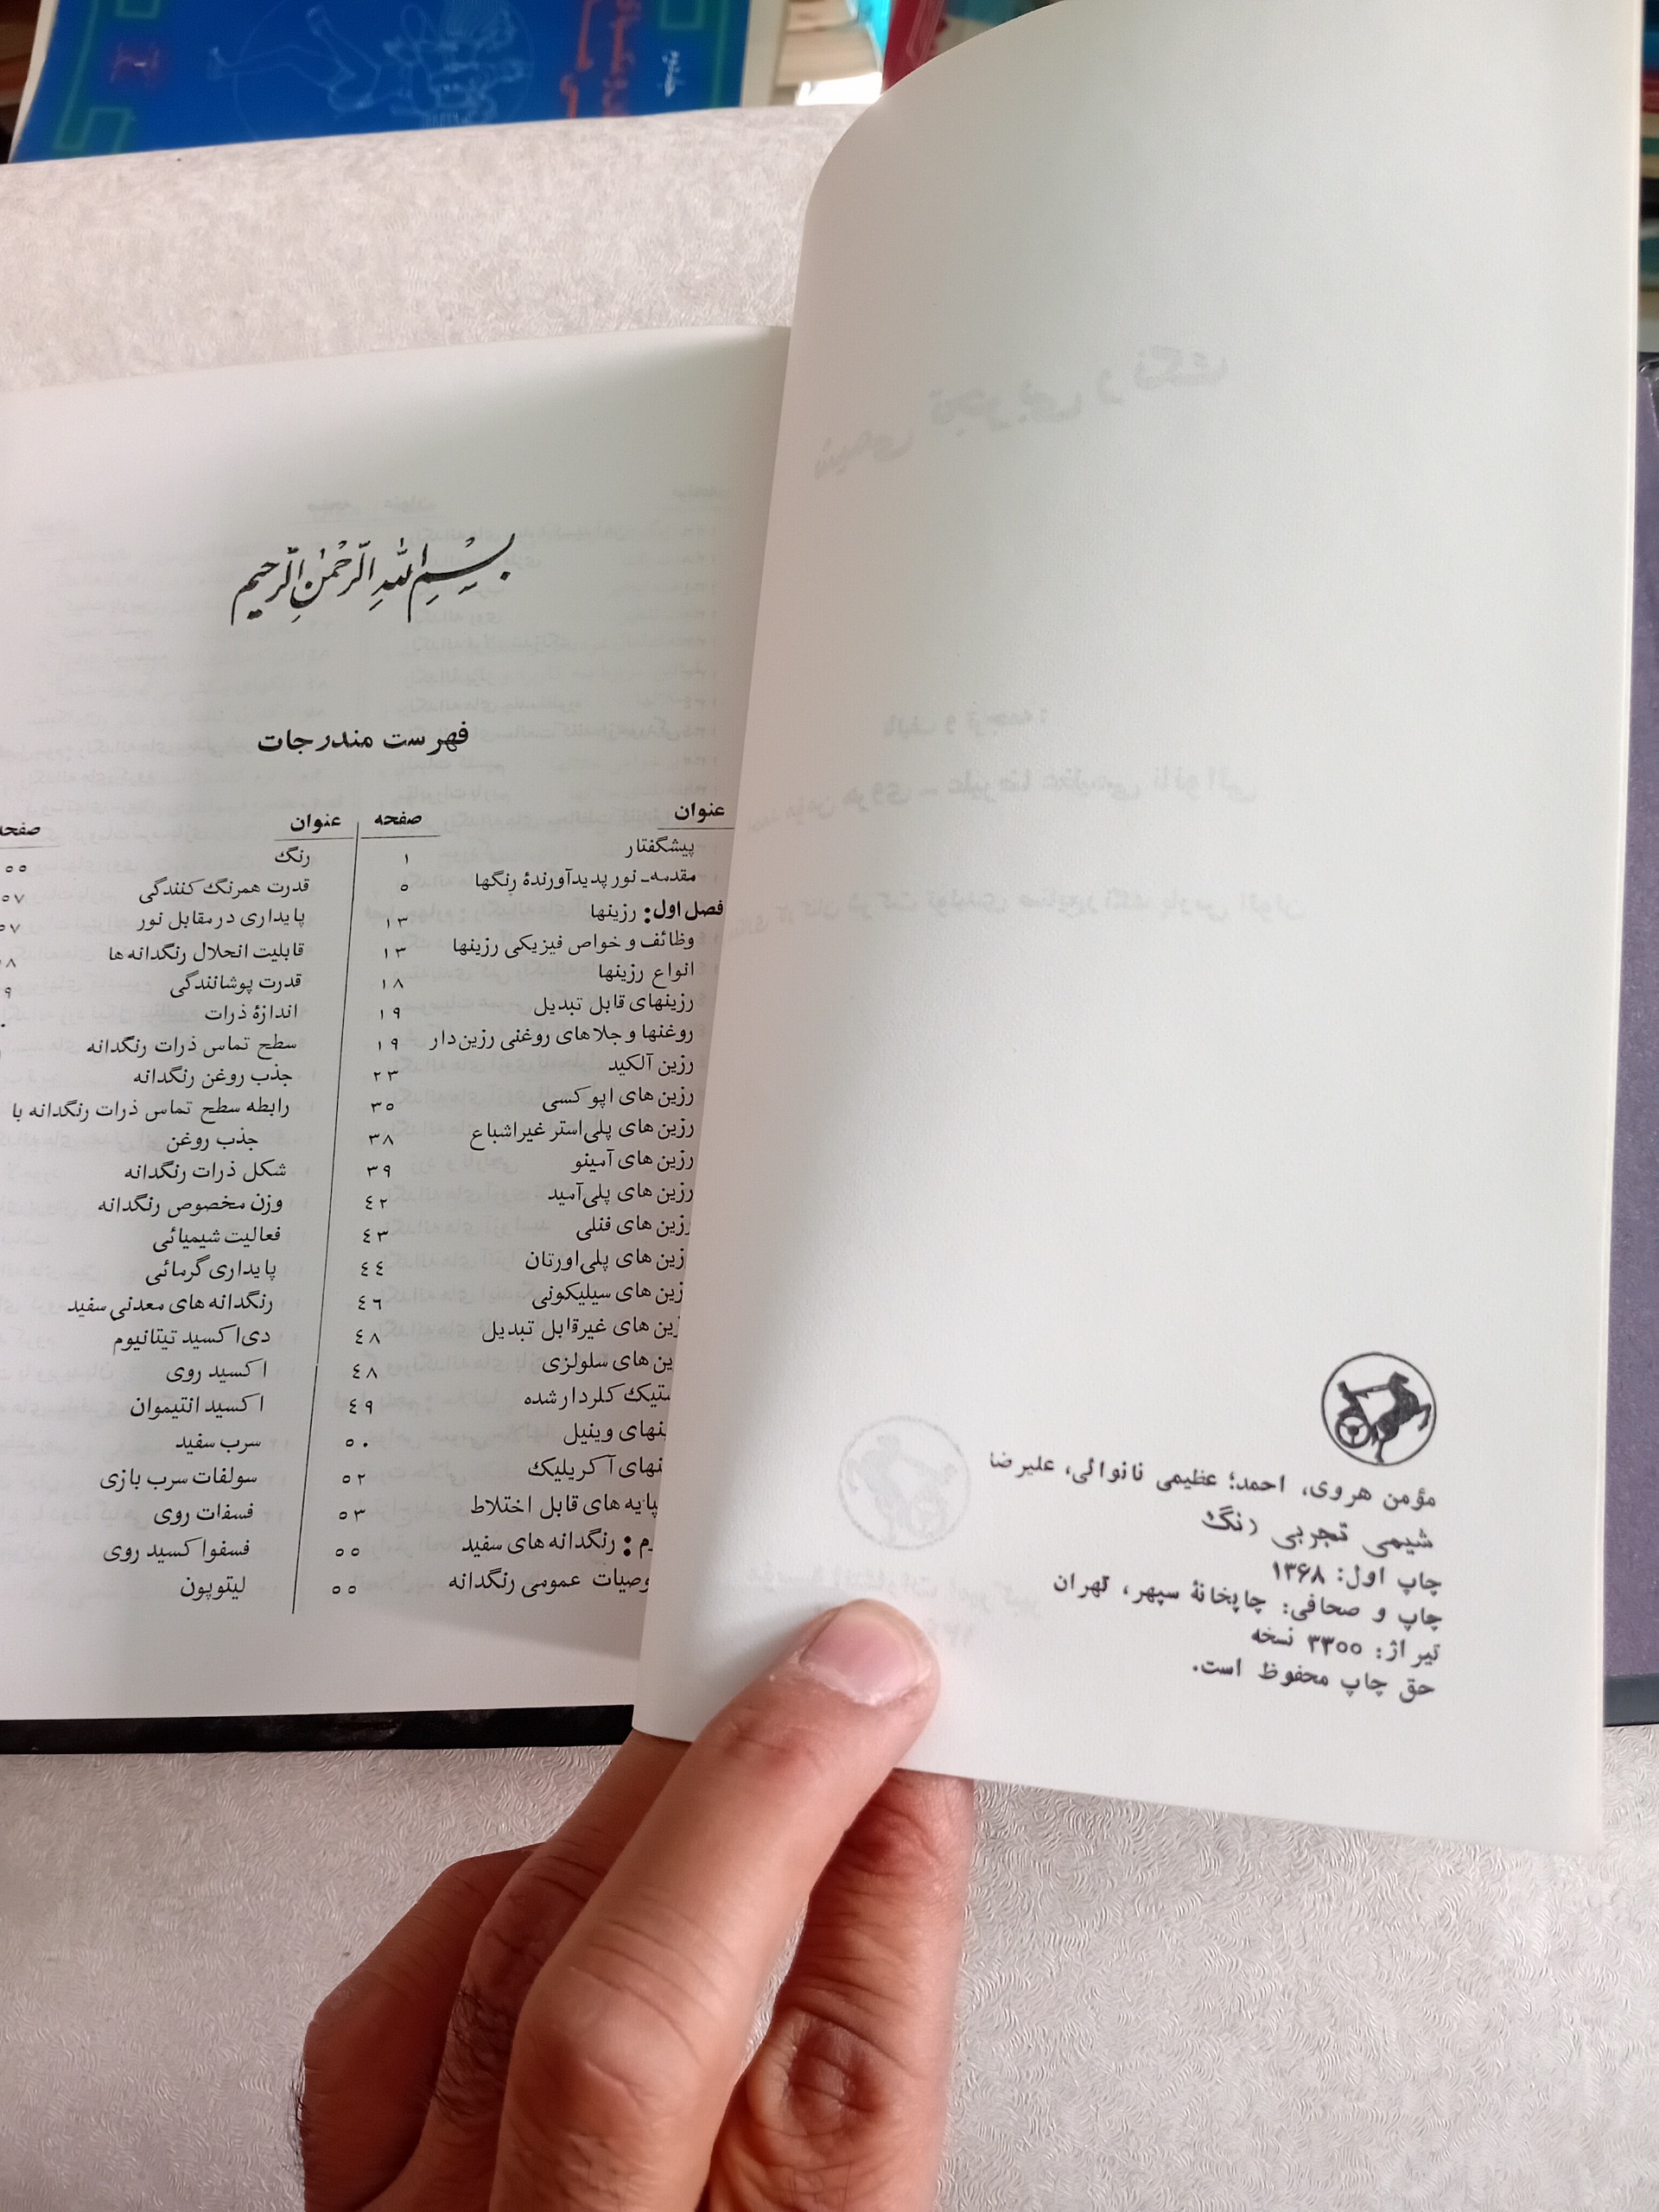 مؤمن هروی، احمد؛ عظیمی نانوائی، علیرضا
شیمی تجربی رنگ
چاپ اول: ۱۳۶۸
چاپ و صحافی: چاپخانهٔ سپهر، تهران
تیراژ: ۳۳۰۰ نسخه
حق چاپ محفوظ است.
بسم الله الرحمن الرحیم
فهرست مندرجات
عنوان صفحه
پیشگفتار ۱
مقدمه- نور پدیدآورندهٔ رنگها ۵
فصل اول: رزینها ۱۳
وظائف و خواص فیزیکی رزینها ۱۳
انواع رزینها ۱۸
رزینهای قابل تبدیل ۱۹
روغنها و جلاهای روغنی رزین‌دار ۱۹
رزین آلکید ۲۳
رزین های اپوکسی ۳۵
رزین های پلی‌استر غیراشباع ۳۸
رزین های آمینو ۳۹
رزین های پلی‌آمید ۴۲
رزین های فنلی ۴۳
رزین های پلی‌اورتان ۴۴
رزین های سیلیکونی ۴۶
های غیرقابل تبدیل ۴۸
های سلولزی ۴۸
کلردار شده ۴۹
وینیل ۵۰
آکریلیک ۵۲
پایه های قابل اختلاط ۵۳
: رنگدانه های سفید ۵۵
عمومی رنگدانه ۵۵
عنوان صفحه
رنگ ۵۵
قدرت همرنگ کنندگی ۵۷
پایداری در مقابل نور ۵۷
قابلیت انحلال رنگدانه ها
قدرت پوشانندگی
اندازهٔ ذرات
سطح تماس ذرات رنگدانه
جذب روغن رنگدانه
رابطه سطح تماس ذرات رنگدانه با
جذب روغن
شکل ذرات رنگدانه
وزن مخصوص رنگدانه
فعالیت شیمیائی
پایداری گرمائی
رنگدانه های معدنی سفید
دی‌اکسید تیتانیوم
اکسید روی
اکسید انتیموان
سرب سفید
سولفات سرب بازی
فسفات روی
فسفواکسید روی
لیتوپون